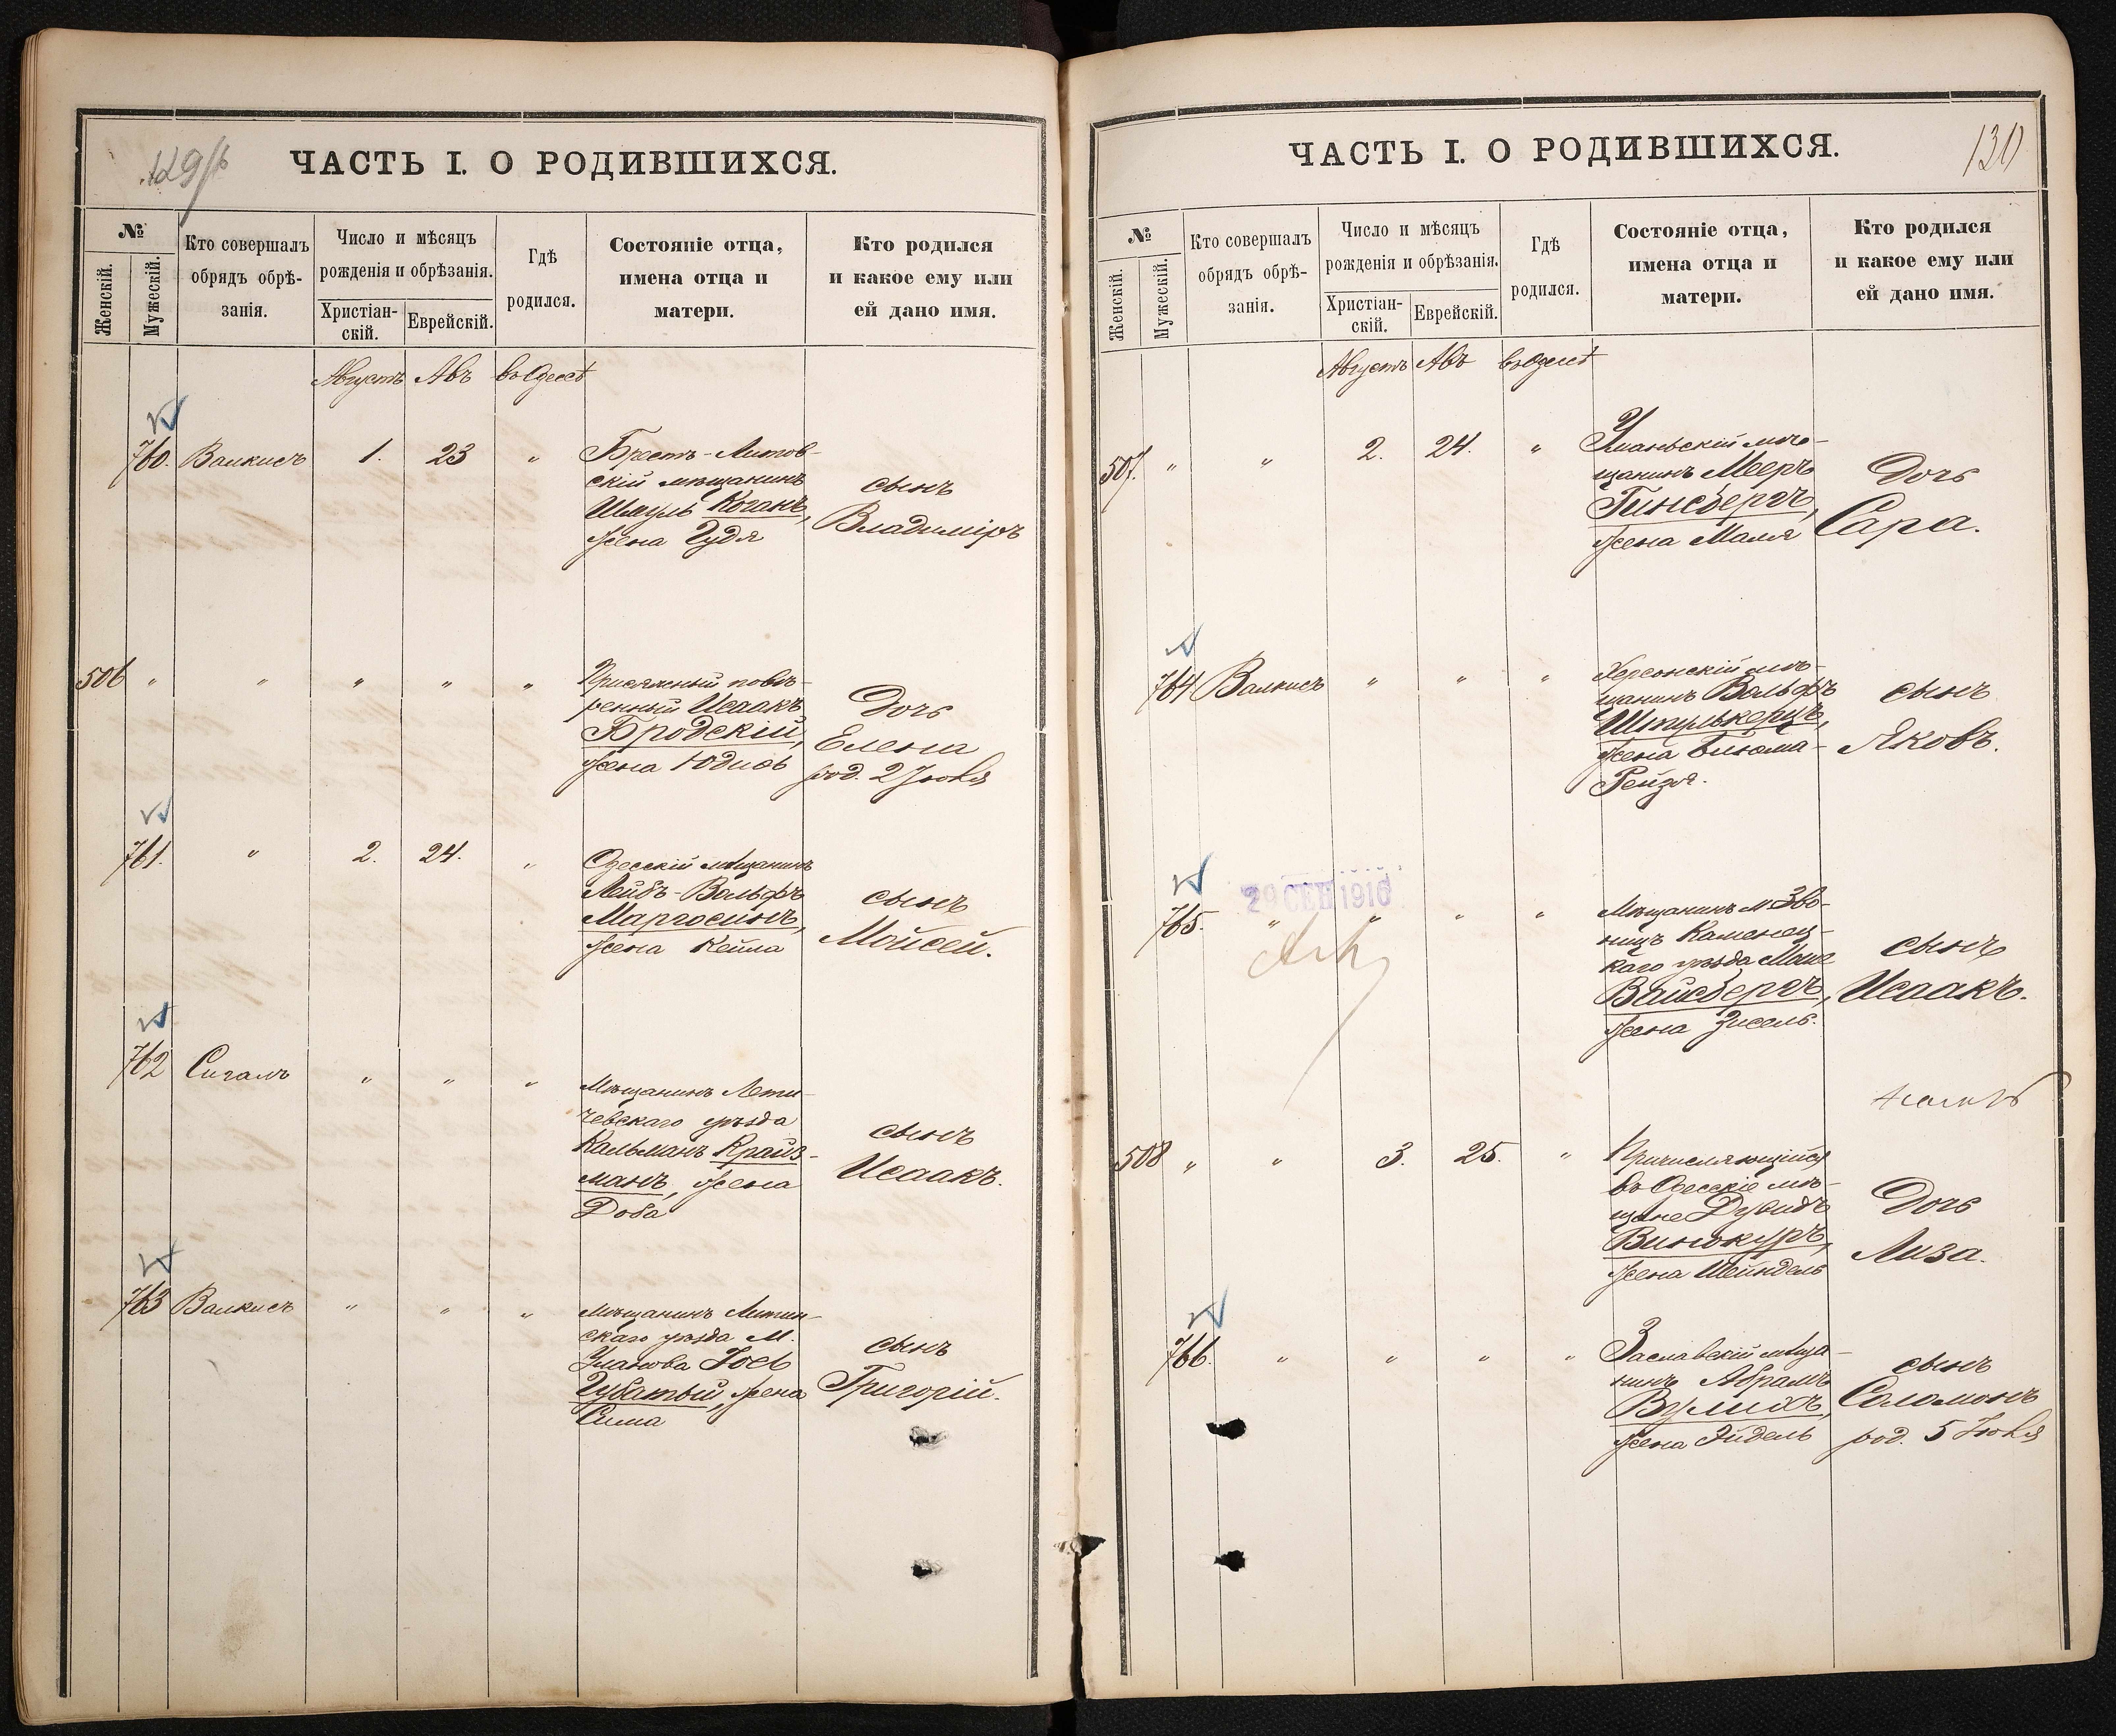 ЧАСТЬ I. О РОДИВШИХСЯ.
№
Женскій.
Мужескій.
Кто совершалъ
обрядъ обрѣ-
занія.
Число и мѣсяцъ
рожденія и обрѣзанія.
Христіан-
скій.
Еврейскій.
Гдѣ
родился.
Состояніе отца,
имена отца и
матери.
Кто родился
и какое ему или
ей дано имя.
Августъ Авъ въ Одессѣ
760. Валкисъ 1. 23 "
Брестъ-Литов-
скій мѣщанинъ
Шмуль Коганъ,
жена Гудя
сынъ
Владиміръ
506 " " " " "
Присяжный повѣ-
ренный Исаакъ
Бродскій,
жена Юдись
Дочь
Елена
род. 2 Іюня
761. " 2. 24. "
Одесскій мѣщанинъ
Лейбъ-Вольфъ
Маргосинъ,
жена Кейла
сынъ
Мойсей.
762 Сигалъ " " "
Мѣщанинъ Лети-
чевскаго уѣзда
Кальманъ Крайз-
манъ, жена
Доба
сынъ
Исаакъ.
763 Валкисъ " " "
Мѣщанинъ Литин-
скаго уѣзда М.
Уланова Іось
Губатый, жена
Сима
сынъ
Григорій.
ЧАСТЬ I. О РОДИВШИХСЯ.
130
№
Женскій.
Мужескій.
Кто совершалъ
обрядъ обрѣ-
занія.
Число и мѣсяцъ
рожденія и обрѣзанія.
Христіан-
скій.
Еврейскій.
Гдѣ
родился.
Состояніе отца,
имена отца и
матери.
Кто родился
и какое ему или
ей дано имя.
Августъ Авъ въ Одессѣ
507. " " 2. 24. "
Уманьскій мѣ-
щанинъ Мееръ
Гинсбергъ,
жена Маля
Дочь
Сара.
764 Валкисъ " " "
Херсонскій мѣ-
щанинъ Вольфъ
Штулькерцъ,
жена Блюма-
Рейзя.
сынъ
Яковъ.
29 СЕН 1916
765. " " " "
Мѣщанинъ м. Зво-
ницъ Каменец-
каго уѣзда Моше
Вайсбергъ,
жена Зисель.
сынъ
Исаакъ.
508 " " 3. 25. "
Причисляющійся
въ Одесскіе мѣ-
щане Дувидъ
Винокуръ,
жена Шейндель
Дочь
Лиза.
766. " " " "
Заславскій мѣща-
нинъ Абрамъ
Вулихъ,
жена Эйдель
сынъ
Соломонъ
род. 5 Іюля